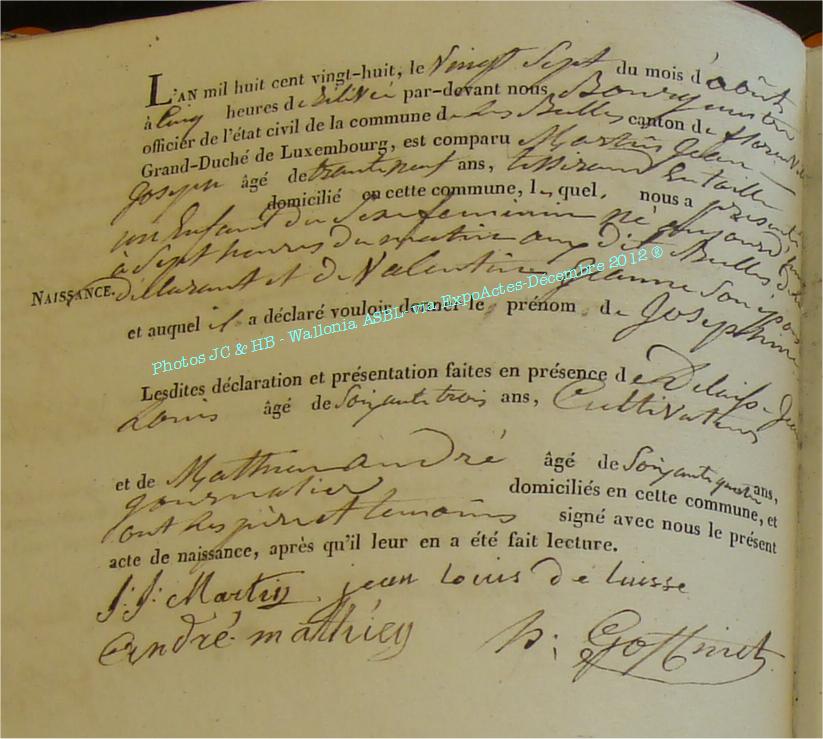 L'AN mil huit cent vingt-huit, le vingt Sept du mois d'août
à Cinq heures de relevée par-devant nous Bourgmestre
officier de l'état civil de la commune des Bulles canton de florenville
Grand-Duché de Luxembourg, est comparu Martin Jean
Joseph âgé de trente neuf ans, tisserand
domicilié en cette commune, lequel nous a présenté
un Enfant du Sexe feminin né aujourd'hui
à Sept heures du matin aux Dit Bulles, de
NAISSANCE. Déclarant et de Valentine Jeanne Son épouse
et auquel il a déclaré vouloir donner le prénom de Josephine
Lesdites déclaration et présentation faites en présence de Delaisse Jean
Louis âgé de Soixante trois ans, Cultivateur
et de Mathieu andré âgé de Soixante quatre ans,
journalier domiciliés en cette commune, et
ont les père et temoins signé avec nous le présent
acte de naissance, après qu'il leur en a été fait lecture.
J: J: Martin jean louis de laisse
andré mathieu h: Goffinet
Photos JC & HB - Wallonia ASBL-via ExpoActes-Décembre 2012 ®